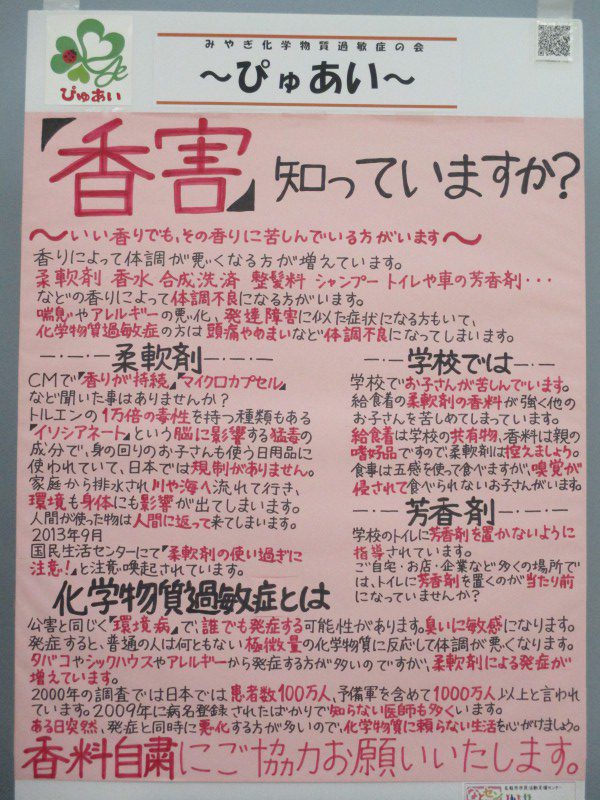 みやぎ化学物質過敏症の会
～ぴゅあい～
ぴゅあい
「香害」知っていますか?
～いい香りでも、その香りに苦しんでいる方がいます～
香りによって体調が悪くなる方が増えています。
柔軟剤 香水 合成洗済 整髪料 シャンプー トイレや車の芳香剤・・・
などの香りによって体調不良になる方がいます。
喘息やアレルギーの悪化、発達障害に似た症状になる方もいて、
化学物質過敏症の方は頭痛やめまいなど体調不良になってしまいます。
柔軟剤
CMで「香りが持続」「マイクロカプセル」
など聞いた事はありませんか?
トルエンの1万倍の毒性を持つ種類もある
「イソシアネート」という脳に影響する猛毒の
成分で、身の回りのお子さんも使う日用品に
使われていて、日本では規制がありません。
家庭から排水され川や海へ流れて行き、
環境も身体にも影響が出てしまいます。
人間が使った物は人間に返って来てしまいます。
2013年9月
国民生活センターにて「柔軟剤の使い過ぎに
注意!」と注意喚起されています。
学校では
学校でお子さんが苦しんでいます。
給食着の柔軟剤の香料が強く他の
お子さんを苦しめてしまっています。
給食着は学校の共有物、香料は親の
嗜好品ですので柔軟剤は控えましょう。
食事は五感を使って食べますが、嗅覚が
侵されて食べられないお子さんがいます。
芳香剤
学校のトイレに芳香剤を置かないように
指導されています。
ご自宅・お店・企業など多くの場所で
は、トイレに芳香剤を置くのが当たり前
になっていませんか?
化学物質過敏症とは
公害と同じく「環境病」で、誰でも発症する可能性があります。臭いに敏感になります。
発症すると、普通の人は何ともない極微量の化学物質に反応して体調が悪くなります。
タバコやシックハウスやアレルギーから発症する方が多いのですが、柔軟剤による発症が
増えています。
2000年の調査では日本では患者数100万人、予備軍を含めて1000万人以上と言われ
ています。2009年に病名登録されたばかりで知らない医師も多くいます。
ある日突然、発症と同時に悪化する方が多いので、化学物質に頼らない生活を心がけましょう。
香料自粛にご協力お願いいたします。